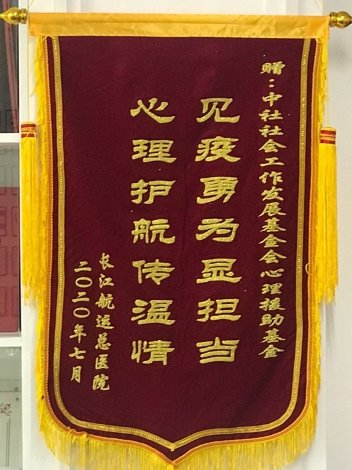 赠：中社社会工作发展基金会心理援助基金
见疫勇为显担当
心理护航传温情
长江航运总医院
二〇二〇年七月